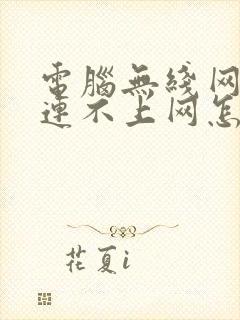 電腦無綫网
連不上网怎
花夏i